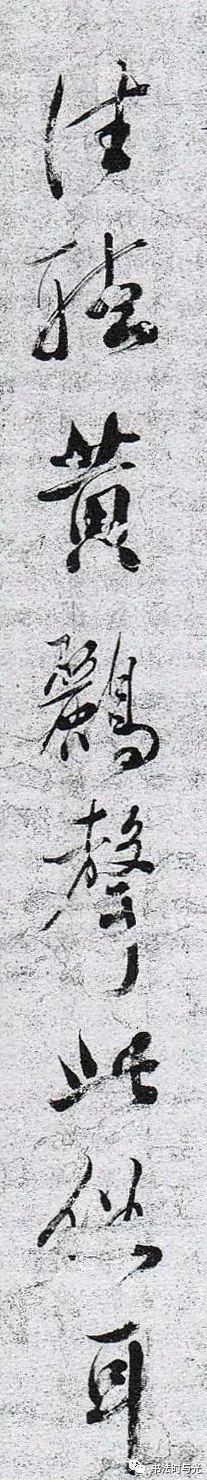 往聽黃鸝聲此俗耳
书法时与光